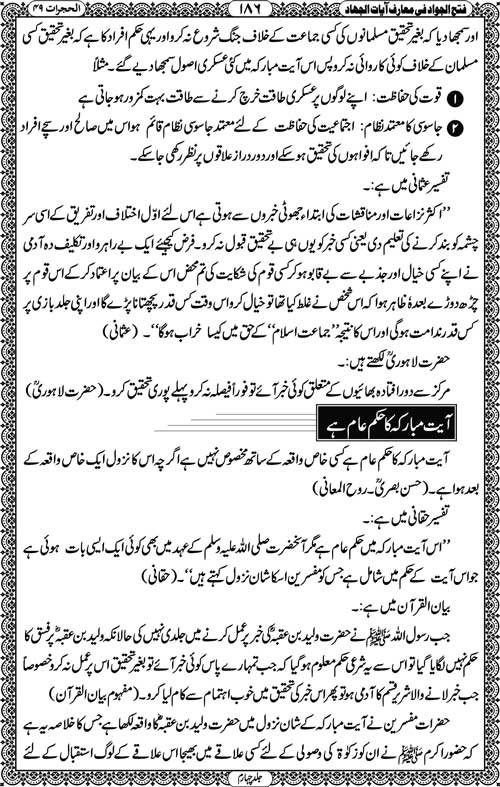 فتح الجواد فی معارف آیات الجہاد ۱۸۶ الحجرات ۴۹
اور سمجھا دیا کہ بغیر تحقیق مسلمانوں کی کسی جماعت کے خلاف جنگ شروع نہ کرو اور یہی حکم افراد کا ہے کہ بغیر تحقیق کسی
مسلمان کے خلاف کوئی کاروائی نہ کرو پس اس آیت مبارکہ میں کئی عسکری اصول سمجھا دیے گئے۔ مثلاً
❶ قوت کی حفاظت: اپنے لوگوں پر عسکری طاقت خرچ کرنے سے طاقت بہت کمزور ہو جاتی ہے
❷ جاسوسی کا معتمد نظام: اجتماعیت کی حفاظت کے لئے معتمد جاسوسی نظام قائم ہو اس میں صالح اور سچے افراد
رکھے جائیں تاکہ افواہوں کی تحقیق ہو سکے اور دور دراز علاقوں پر نظر رکھی جا سکے۔
تفسیر عثمانی میں ہے:۔
’’اکثر نزاعات اور مناقشات کی ابتداء جھوٹی خبروں سے ہوتی ہے اس لئے اوّل اختلاف اور تفریق کے اسی سر
چشمہ کو بند کرنے کی تعلیم دی یعنی کسی خبر کو یوں ہی بے تحقیق قبول نہ کرو۔ فرض کیجیئے ایک بے راہ رو اور تکلیف دہ آدمی
نے اپنے کسی خیال اور جذبے سے بے قابو ہو کر کسی قوم کی شکایت کی تم محض اس کے بیان پر اعتماد کر کے اس قوم پر
چڑھ دوڑے بعدہٗ ظاہر ہوا کہ اس شخص نے غلط کہا تھا تو خیال کرو اس وقت کس قدر پچھتانا پڑے گا اور اپنی جلد بازی پر
کس قدر ندامت ہو گی اور اس کا نتیجہ ’’جماعت اسلام‘‘ کے حق میں کیسا خراب ہو گا‘‘۔ (عثمانی)
حضرت لاہوریؒ لکھتے ہیں:۔
مرکز سے دور افتادہ بھائیوں کے متعلق کوئی خبر آئے تو فوراً فیصلہ نہ کرو پہلے پوری تحقیق کرو۔ (حضرت لاہوریؒ)
آیت مبارکہ کا حکم عام ہے
آیت مبارکہ کا حکم عام ہے کسی خاص واقعہ کے ساتھ مخصوص نہیں ہے اگرچہ اس کا نزول ایک خاص واقعہ کے
بعد ہوا ہے۔ (حسن بصریؒ۔ روح المعانی)
تفسیر حقانی میں ہے:۔
’’اس آیت مبارکہ میں حکم عام ہے مگر آنحضرت صلی اللہ علیہ وسلم کے عہد میں بھی کوئی ایک ایسی بات ہوئی ہے
جو اس آیت کے حکم میں شامل ہے جس کو مفسرین اسکا شان نزول کہتے ہیں‘‘۔ (حقانی)
بیان القرآن میں ہے:۔
جب رسول اللہ ﷺ نے حضرت ولید بن عقبہؓ کی خبر پر عمل کرنے میں جلدی نہیں کی حالانکہ ولید بن عقبہؓ پر فسق کا
حکم نہیں لگایا گیا تو اس سے یہ شرعی حکم معلوم ہو گیا کہ جب تمہارے پاس کوئی خبر آئے تو بغیر تحقیق اس پر عمل نہ کرو خصوصاً
جب خبر لانے والا شریر قسم کا آدمی ہو تو پھر اس خبر کی تحقیق میں خوب اہتمام سے کام لیا کرو۔ (مفہوم بیان القرآن)
حضرات مفسرین نے آیت مبارکہ کے شان نزول میں حضرت ولید بن عقبہؓ کا واقعہ لکھا ہے جس کا خلاصہ یہ ہے
کہ حضور اکرم ﷺ نے ان کو زکوٰۃ کی وصولی کے لئے کسی علاقے میں بھیجا اس علاقے کے لوگ استقبال کے لئے
جلد چہارم